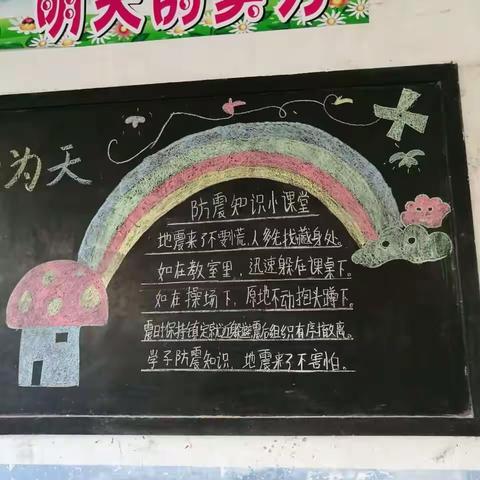 明天的努力
为天
防震知识小课堂
地震来了不要慌,人多先找藏身处。
如在教室里,迅速躲在课桌下。
如在操场下,原地不动抱头蹲下。
震时保持镇定就近躲避震后组织有序撤离。
学子防震知识,地震来了不害怕。